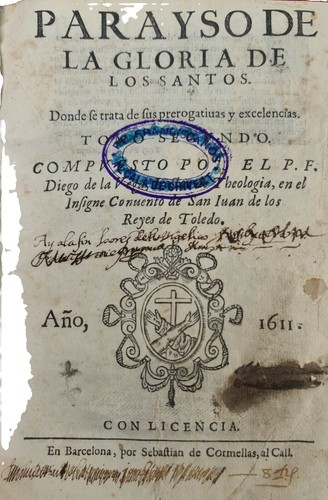 PARAYSO DE
LA GLORIA DE
LOS SANTOS.
Donde se trata de sus prerogatiuas y excelencias.
TOMO SEGUNDO.
COMPVESTO POR EL P. F.
Diego de la Theologia, en el
Insigne Conuento de San Iuan de los
Reyes de Toledo.
Año, 1611.
CON LICENCIA.
En Barcelona, por Sebastian de Cormellas, al Call.